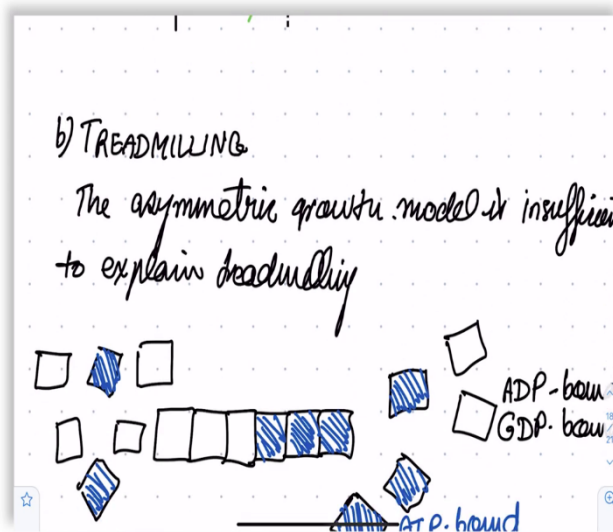 b) TREADMILLING
The asymmetric growth model is insufficien
to explain treadmilling
ADP-boun
GDP-boun
ATP-bound